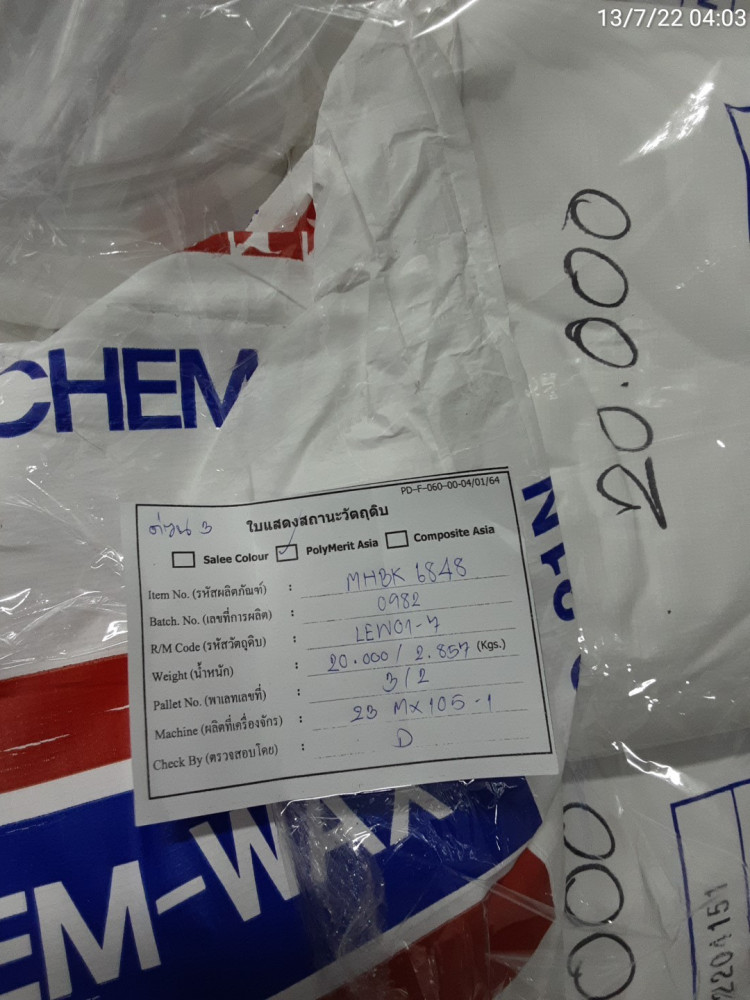 13/7/22 04:03
20.000
CHEM
PD-F-060-00-04/01/64
ด่วน 3
ใบแสดงสถานะวัตถุดิบ
Salee Colour PolyMerit Asia Composite Asia
Item No. (รหัสผลิตภัณฑ์) : MHBK 6848
Batch. No. (เลขที่การผลิต) : 0982
R/M Code (รหัสวัตถุดิบ) : LEW01-7
Weight (น้ำหนัก) : 20.000 / 2.857 (Kgs.)
Pallet No. (พาเลทเลขที่) : 3/2
Machine (ผลิตที่เครื่องจักร) : 23 MX105-1
Check By (ตรวจสอบโดย) : D
EM-WAX
000
2204151